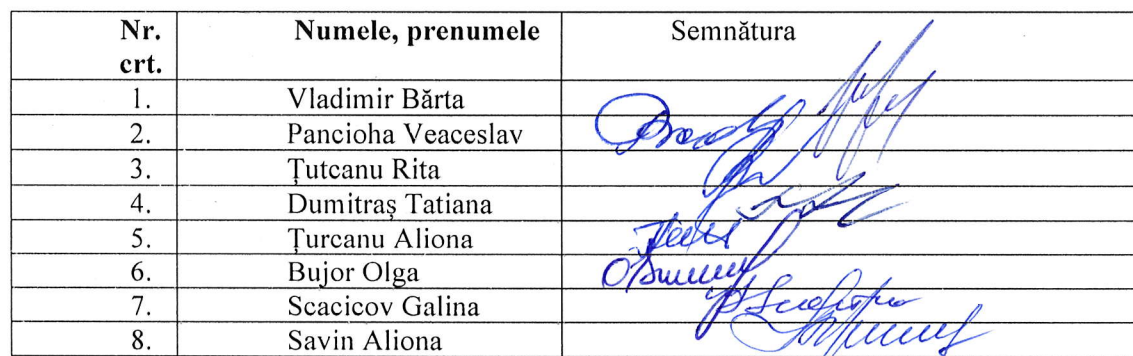 Nr. crt. Numele, prenumele Semnătura
1. Vladimir Bărta
2. Pancioha Veaceslav
3. Țutcanu Rita
4. Dumitraş Tatiana
5. Țurcanu Aliona
6. Bujor Olga
7. Scacicov Galina
8. Savin Aliona